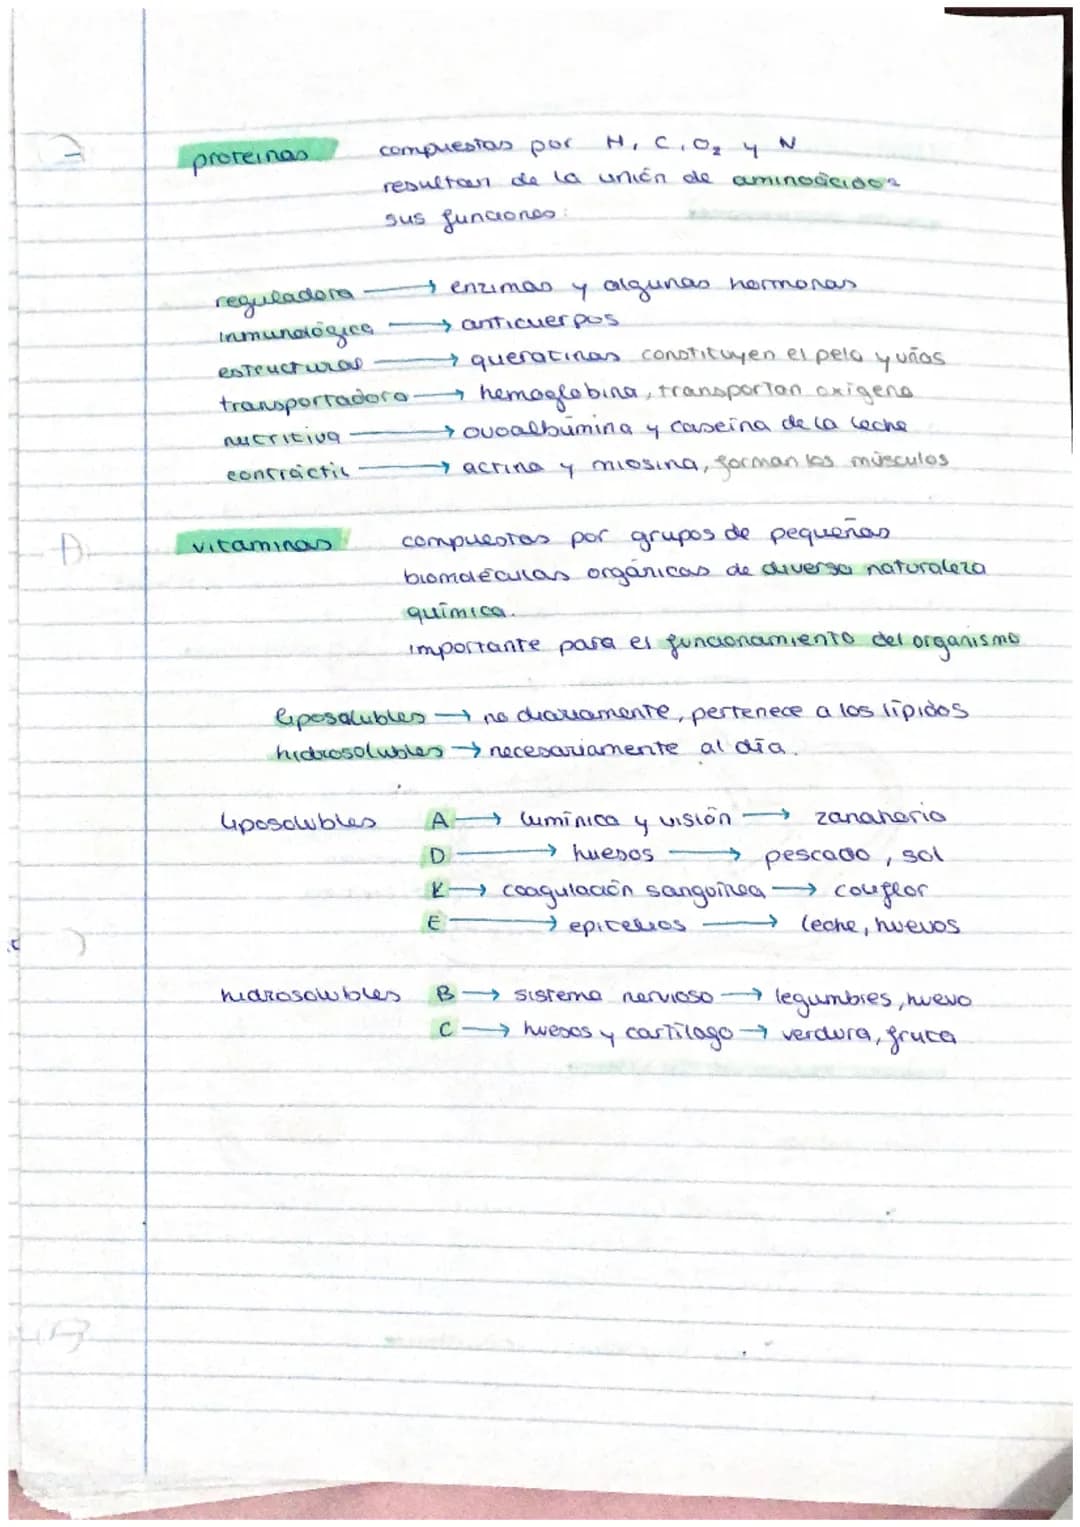 proteinas compuestas por H, C, O₂ y N
resultan de la unión de aminoácidos
sus funciones:
reguladora → enzimas y algunas hormonas
inmunológica → anticuerpos
estructural → queratinas constituyen el pelo y uñas
transportadora → hemoglobina, transportan oxígeno
nutritiva → ovoalbúmina y caseína de la leche
contráctil → actina y miosina, forman los músculos
vitaminas compuestas por grupos de pequeñas
biomoléculas orgánicas de diversa naturaleza
química.
importante para el funcionamiento del organismo
liposolubles → no diariamente, pertenece a los lípidos
hidrosolubles → necesariamente al día.
liposolubles A → lumínica y visión → zanahoria
D → huesos → pescado, sol
K → coagulación sanguínea → coliflor
E → epitelios → leche, huevos
hidrosolubles B → sistema nervioso → legumbres, huevo
C → huesos y cartílago → verdura, fruta